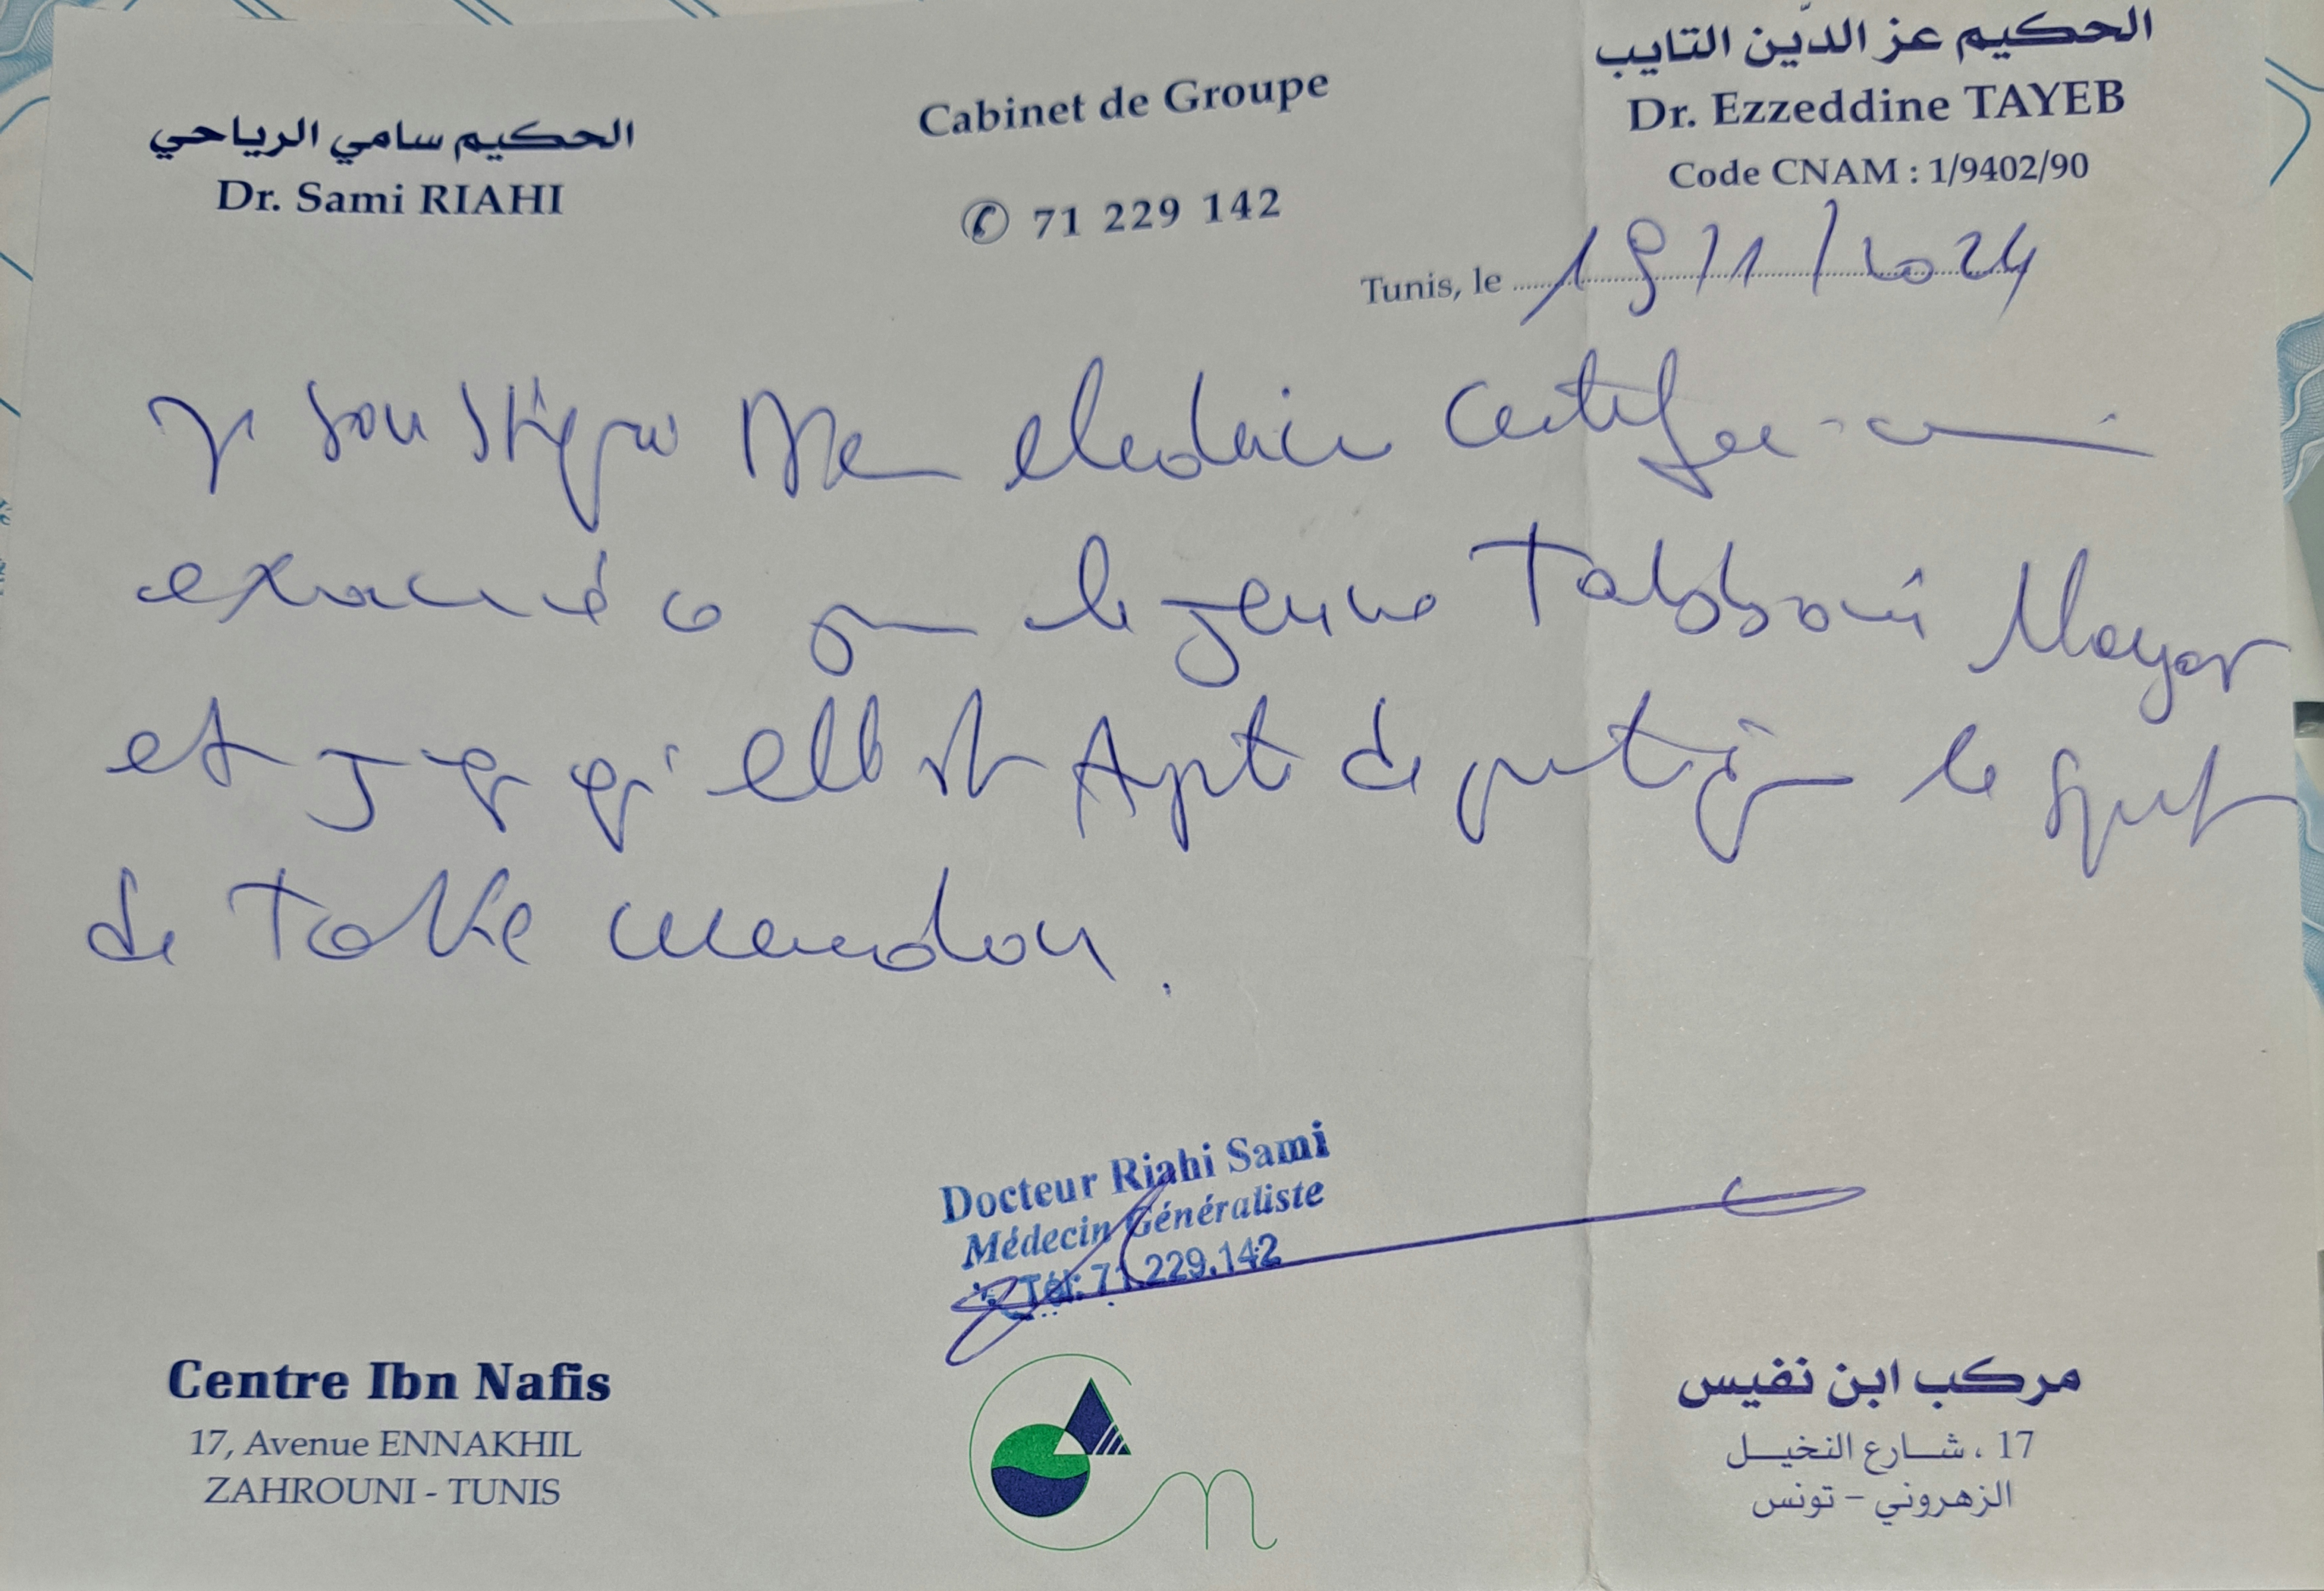 الحكيم سامي الرياحي
Dr. Sami RIAHI
Cabinet de Groupe
✆ 71 229 142
الحكيم عز الدّين التايب
Dr. Ezzeddine TAYEB
Code CNAM : 1/9402/90
Tunis, le 19/1/2024
Je soussigné Dr en médecine certifie avoir
examiné ce jour le jeune Tabboui Mayar
et juge qu'elle est Apte de pratiquer le sport
de Tak wendou.
Docteur Riahi Sami
Médecin Généraliste
Tél: 71.229.142
Centre Ibn Nafis
17, Avenue ENNAKHIL
ZAHROUNI - TUNIS
مركب ابن نفيس
17 ، شارع النخيل
الزهروني - تونس